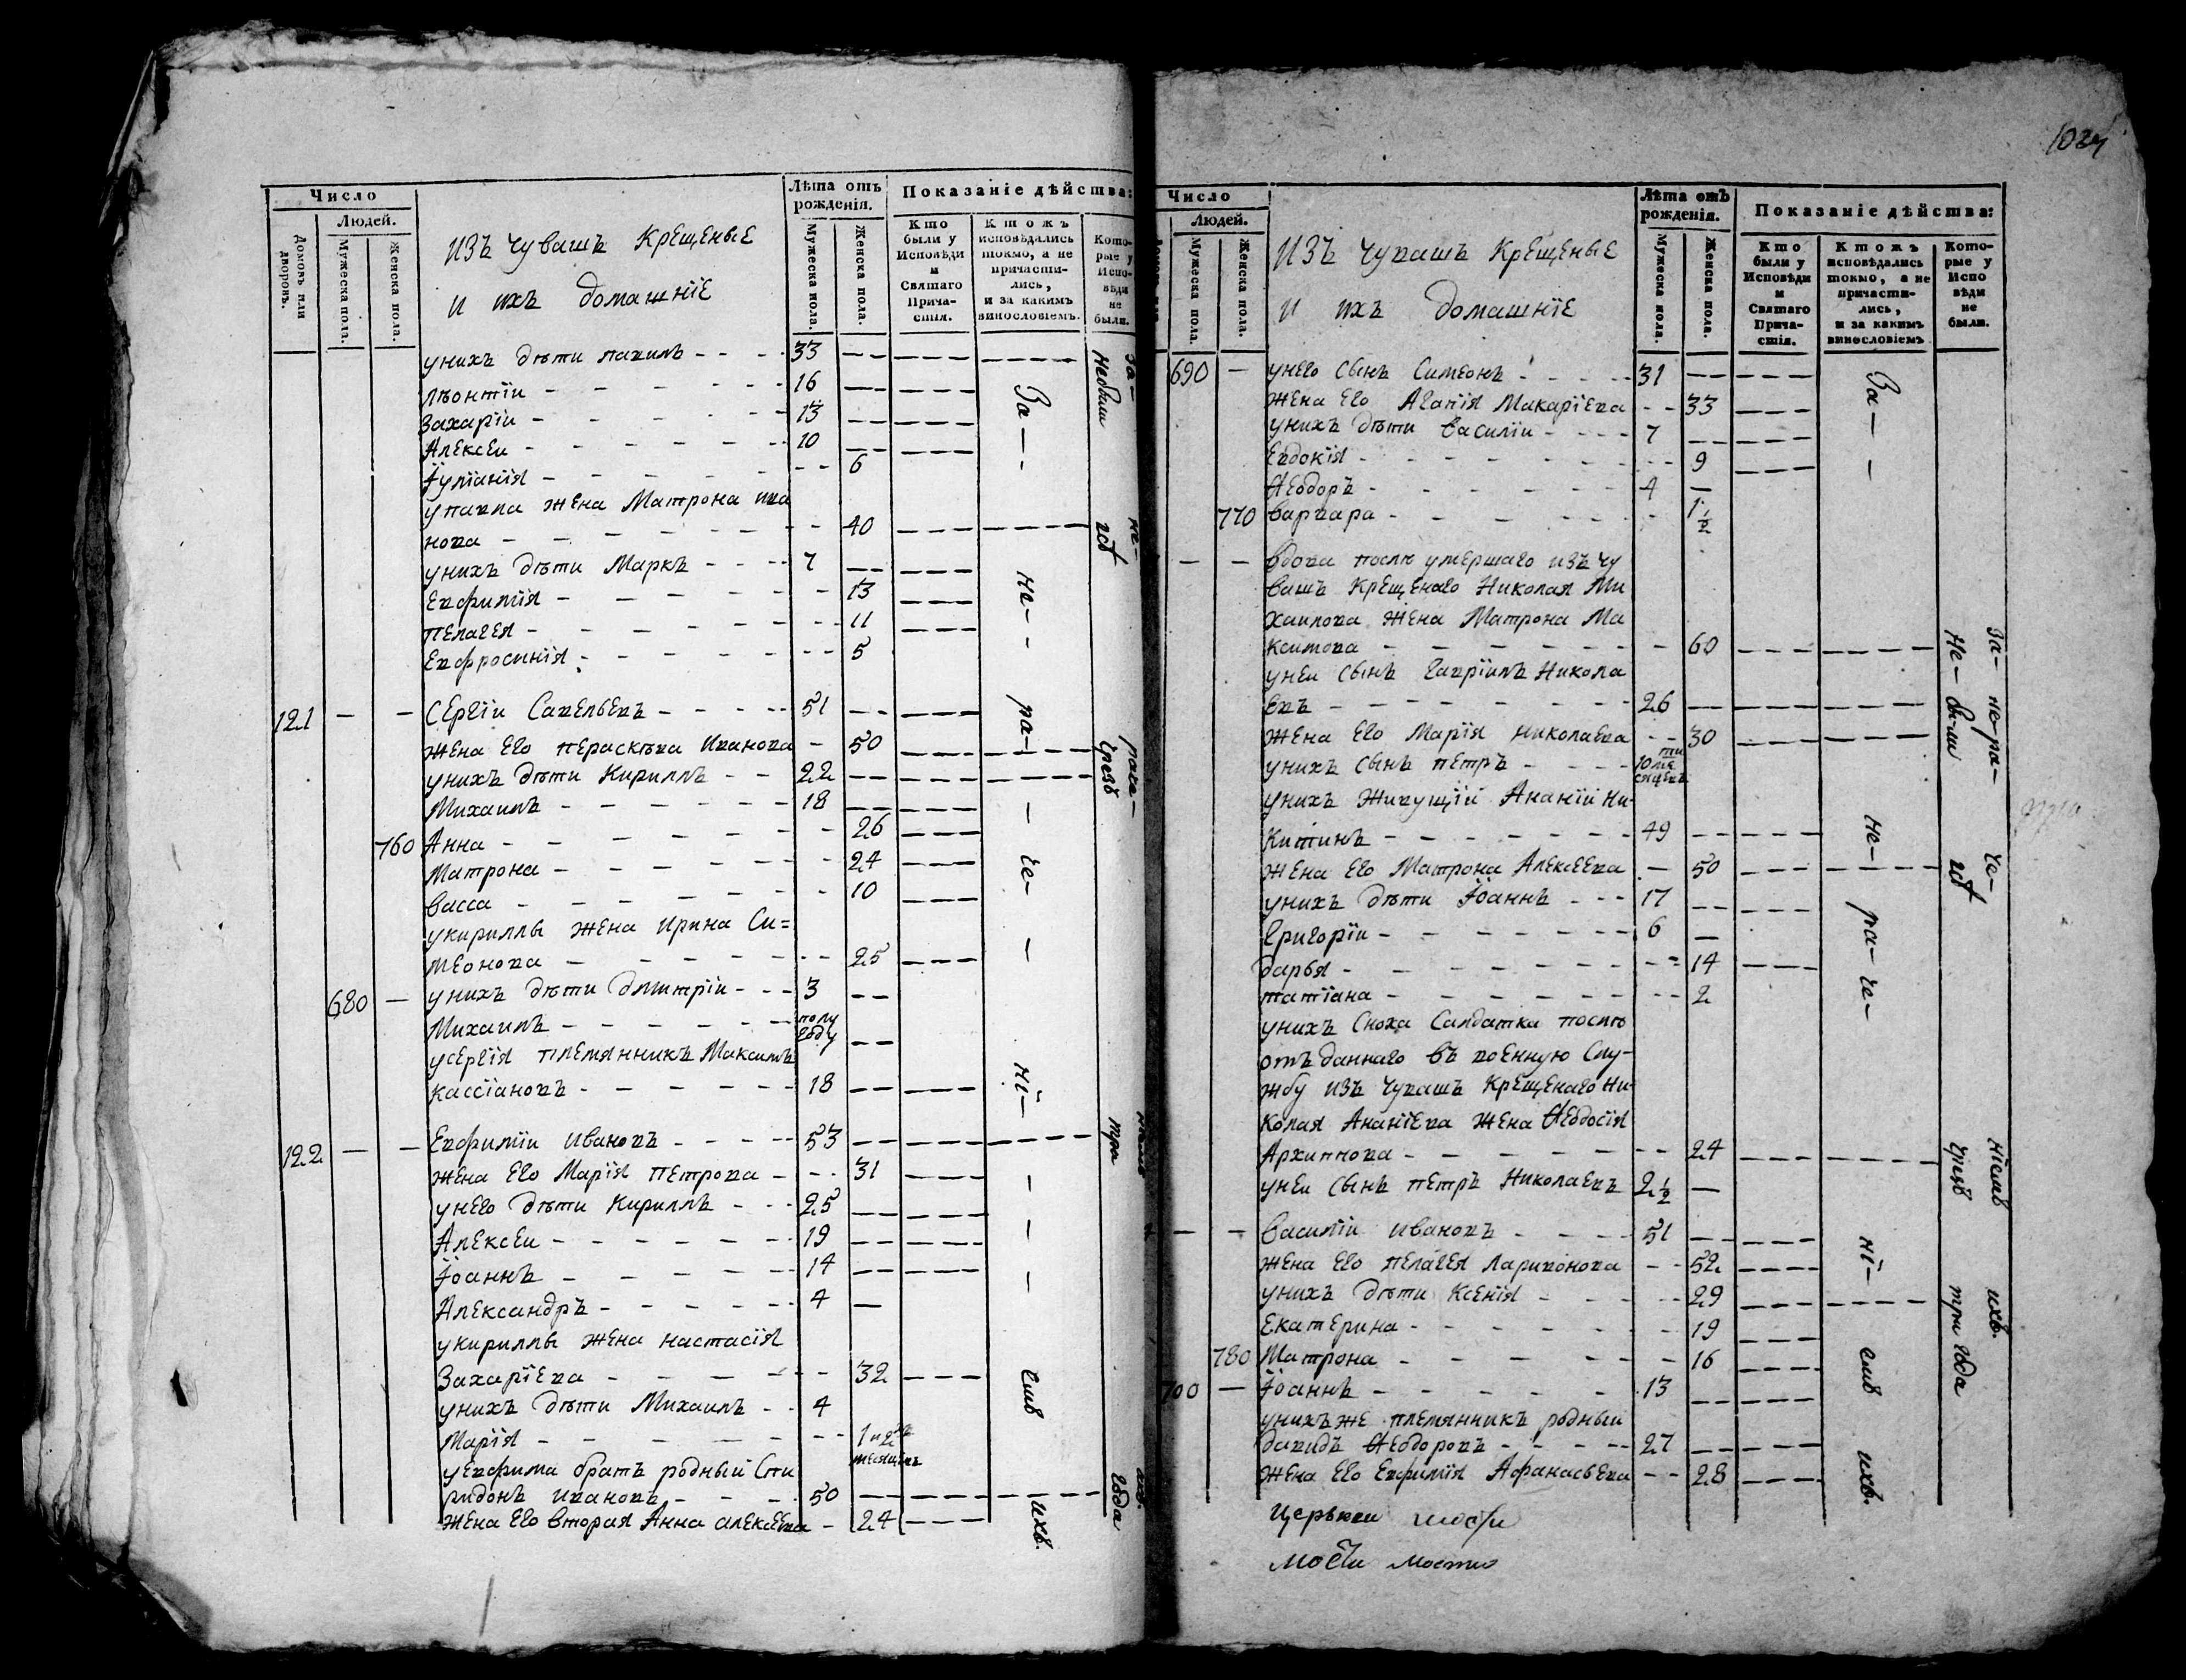 Число
Людей.
Домовъ или дворовъ.
Мужеска пола.
Женска пола.
изъ чувашъ крещеные
и ихъ домашнїе
Лѣта отъ рожденія.
Мужеска пола.
Женска пола.
Показаніе дѣйства:
Кто были у Исповѣди и Святаго Прича-стія.
Ктожъ исповѣдались токмо, а не причасти-лись, и за какимъ винословіемъ.
Кото-рые у Испо-вѣди не были.
унихъ дѣти павилъ - - - 33
лѣонтїи - - - 16
Захарїи - - - 13
Алексеи - - - 10
Їулїанїя - - - 6
упавла жена Матрона ива
нова - - - 40
унихъ дѣти Маркъ - - - 7
Евфимїя - - - 13
пелагея - - - 11
Евфросинїя - - - 5
121 — — Сергїи Савельевъ - - - 51
жена его пераскѣва Иванова - 50
унихъ дѣти Кириллъ - - 22
Михаилъ - - - 18
760 Анна - - - 26
Матрона - - - 24
васса - - - 10
укириллы жена ирина Си=
меонова - - - 25
680 — унихъ дѣти дмитрїи - - - 3
Михаилъ - - - полу году
усергїя племянникъ Максимъ
кассїановъ - - - 18
122 — — Евфимїи ивановъ - - - 53
жена его Марїя петрова - - - 31
унего дѣти Кириллъ - - - 25
Алексеи - - - 19
Їоаннъ - - - 14
Александръ - - - 4
укириллы жена настасїя
Захарїева - - - 32
унихъ дѣти Михаилъ - - 4
Марїя - - -
уевфима братъ родный Спи
ридонъ ивановъ - - - 50
жена его вторая Анна алексеева - 24
За — не — ра — че — нї — емъ ихъ.
Число
Людей.
Мужеска пола.
Женска пола.
изъ чувашъ крещеные
и ихъ домашнїе
Лѣта отъ рожденія.
Мужеска пола.
Женска пола.
Показаніе дѣйства:
Кто были у Исповѣди и Святаго Прича-стія.
Ктожъ исповѣдались токмо, а не причасти-лись, и за какимъ винословіемъ
Кото-рые у Испо вѣди не были.
690 — унего сынъ Симеонъ - - - 31
жена его Агапїя Макарїева - - 33
унихъ дѣти василїи - - - 7
Евдокїя - - - 9
Ѳеодоръ - - - 4
770 варвара - - - 1½
— — вдова послѣ умершаго изъ чу
вашъ крещенаго Николая Ми
хаилова жена Матрона Ма
ксимова - - - 60
унеи сынъ гаврїилъ Никола
евъ - - - 26
жена его Марїя николаева - - 30
унихъ сынъ петръ - - - 10ти месяцевъ
унихъ живущїй Ананїи Ни-
китинъ - - - 49
жена его Матрона Алексеева - 50
унихъ дѣти Їоаннъ - - - 17
григорїи - - - 6
дарья - - - 14
татїана - - - 2
унихъ сноха салдатка послѣ
отъданнаго въ военную слу-
жбу изъ чувашъ крещенаго Ни-
колая Ананїева жена Ѳеодосїя
Архипова - - - 24
унеи сынъ петръ николаевъ 2½ —
— — василїи ивановъ - - - 51
жена его пелагея ларивонова - - 52
унихъ дѣти Ксенїя - - - 29
Екатерина - - - 19
780 Матрона - - - 16
700 — Їоаннъ - - - 13
унихъже племянникъ родный
давидъ Ѳеодоровъ - - - 27
жена его Евфимїя Афанасьева - - 28
За — не — ра — че — нї — емъ ихъ.
За — не-ра — че — нїемъ ихъ.
не — бы-ли чрезъ три года
церькви